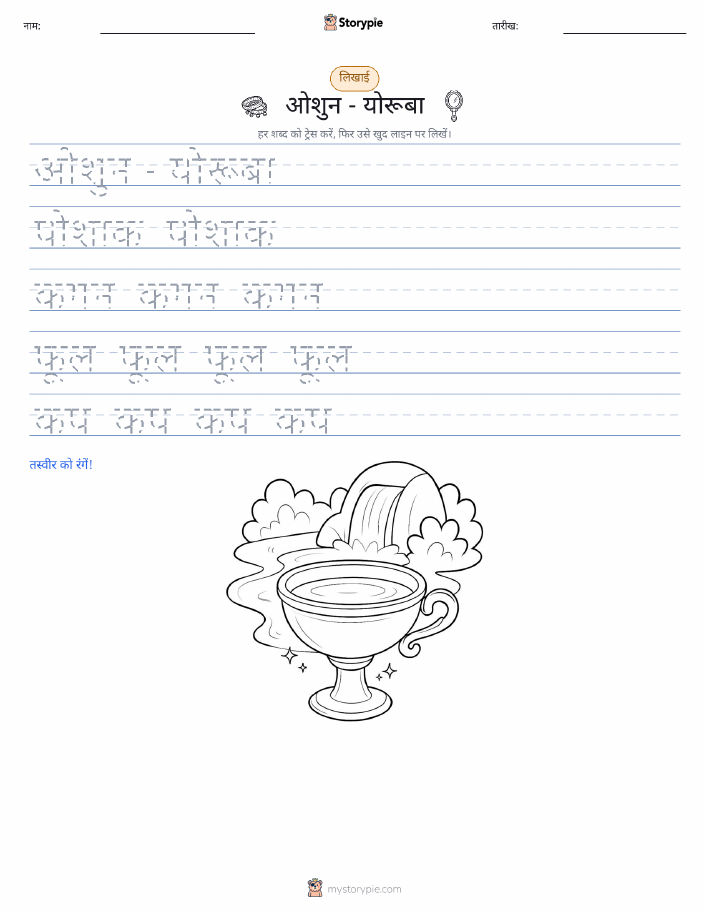 नाम:
Storypie
तारीख:
लिखाई
ओशुन - योरूबा
हर शब्द को ट्रेस करें, फिर उसे खुद लाइन पर लिखें।
ओशुन - योरूबा
पोशाक पोशाक
कंगन कंगन कंगन
फूल फूल फूल फूल
कप कप कप कप
तस्वीर को रंगें!
mystorypie.com